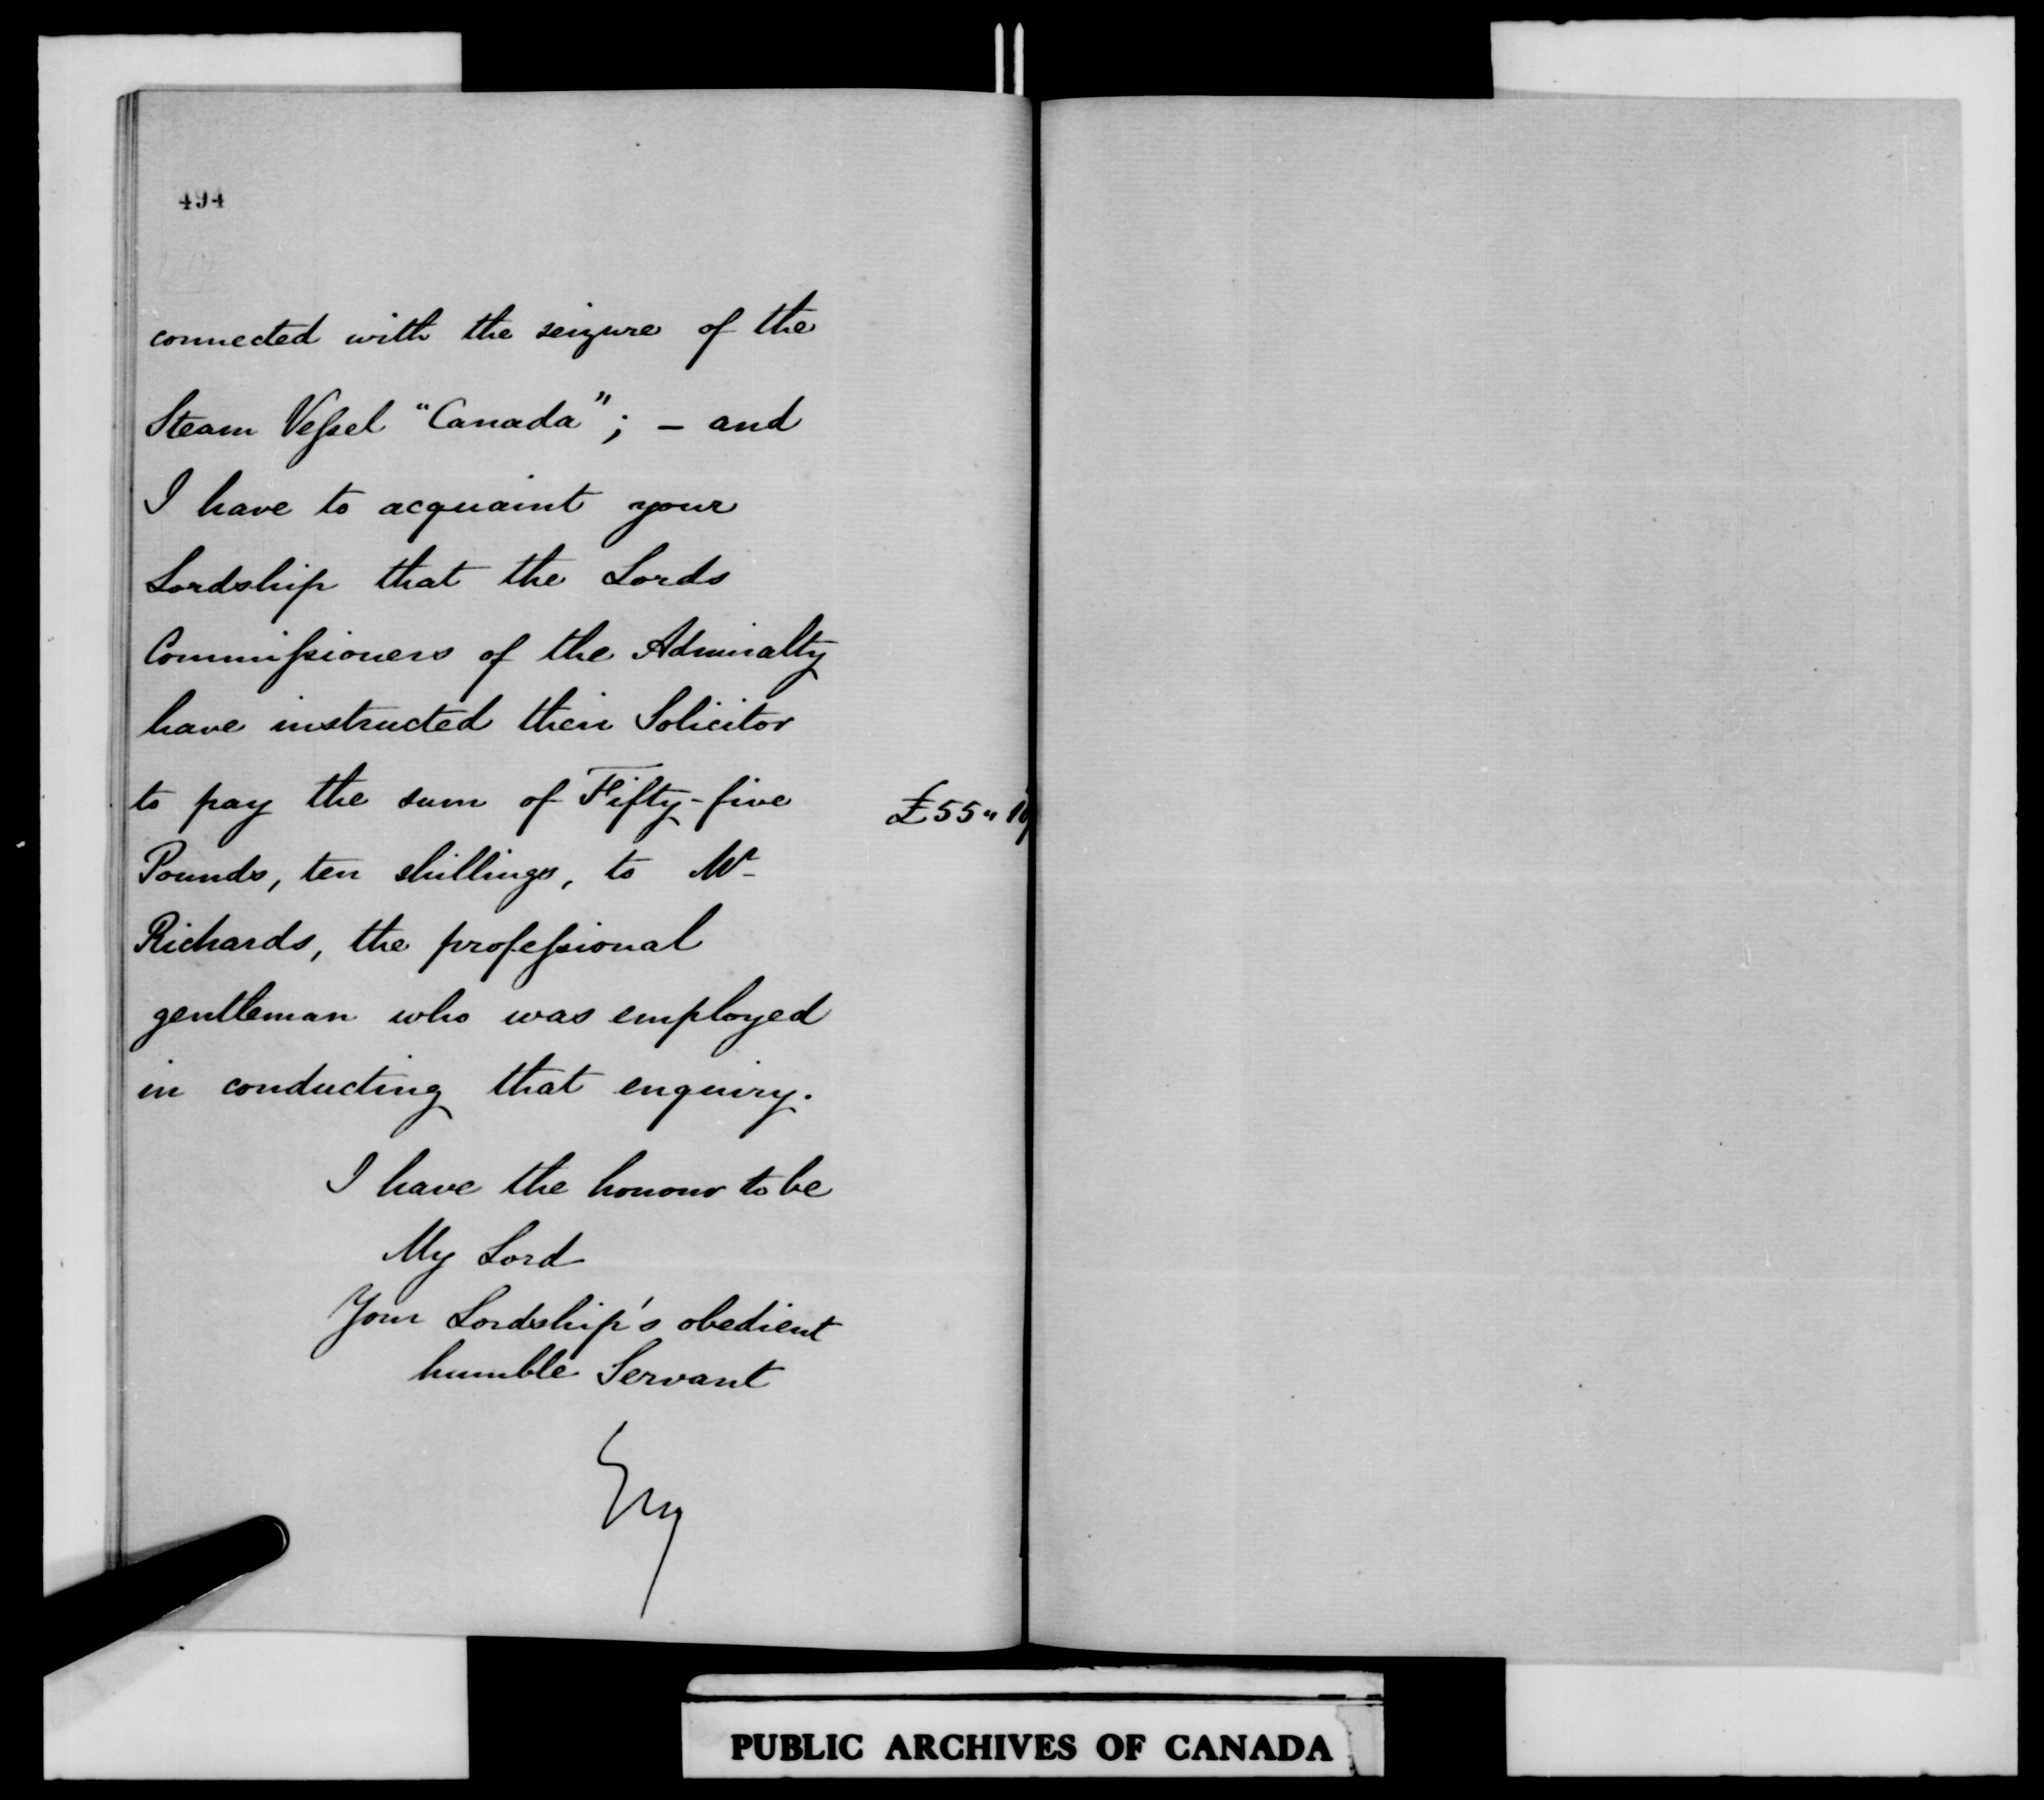 494
connected with the seizure of the
Steam Veſsel "Canada"; - and
I have to acquaint your
Lordship that the Lords
Commiſsioners of the Admiralty
have instructed their Solicitor
to pay the sum of Fifty-five
£55" 10
Pounds, ten shillings, to Mr
Richards, the profeſsional
gentleman who was employed
in conducting that enquiry.
I have the honour to be
My Lord
Your Lordship's obedient
humble Servant
PUBLIC ARCHIVES OF CANADA